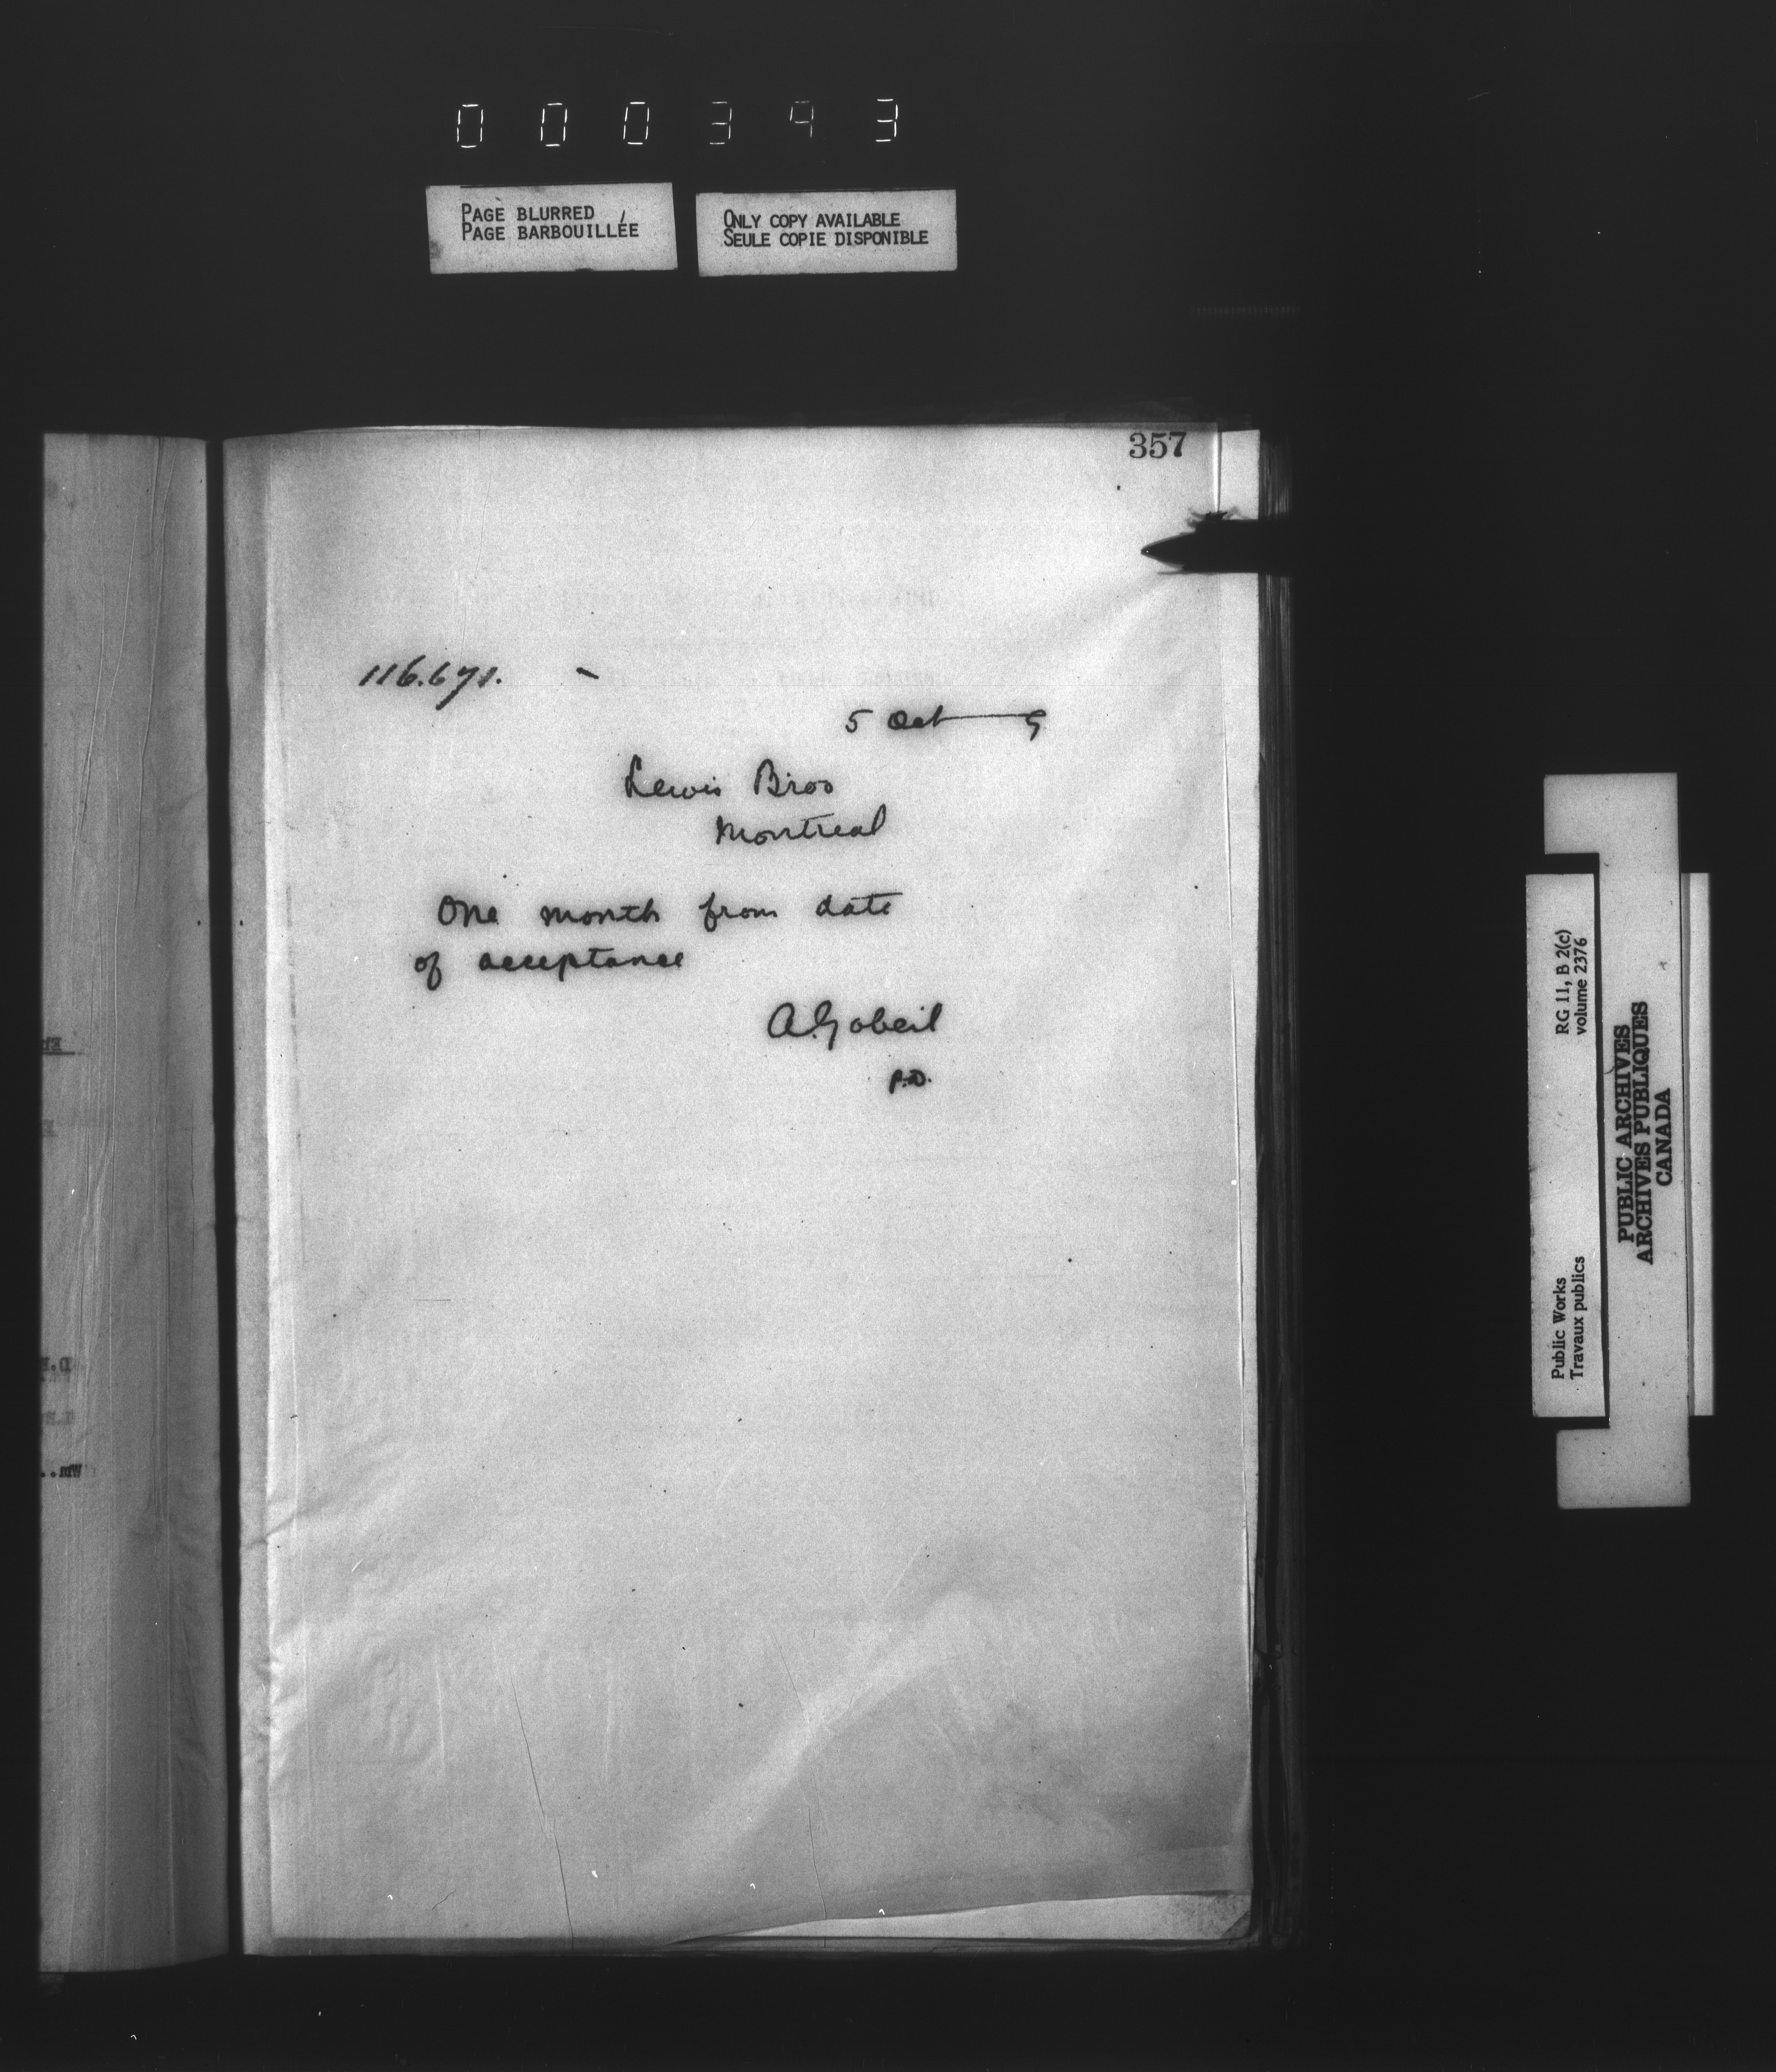 000343
PAGE BLURRED
PAGE BARBOUILLÉE
ONLY COPY AVAILABLE
SEULE COPIE DISPONIBLE
357
116.671.
5 Oct — 9
Lewis Bros
Montreal
One month from date
of acceptance
A. Gobeil
P.D.
Public Works
Travaux publics
RG 11, B 2(c)
volume 2376
PUBLIC ARCHIVES
ARCHIVES PUBLIQUES
CANADA